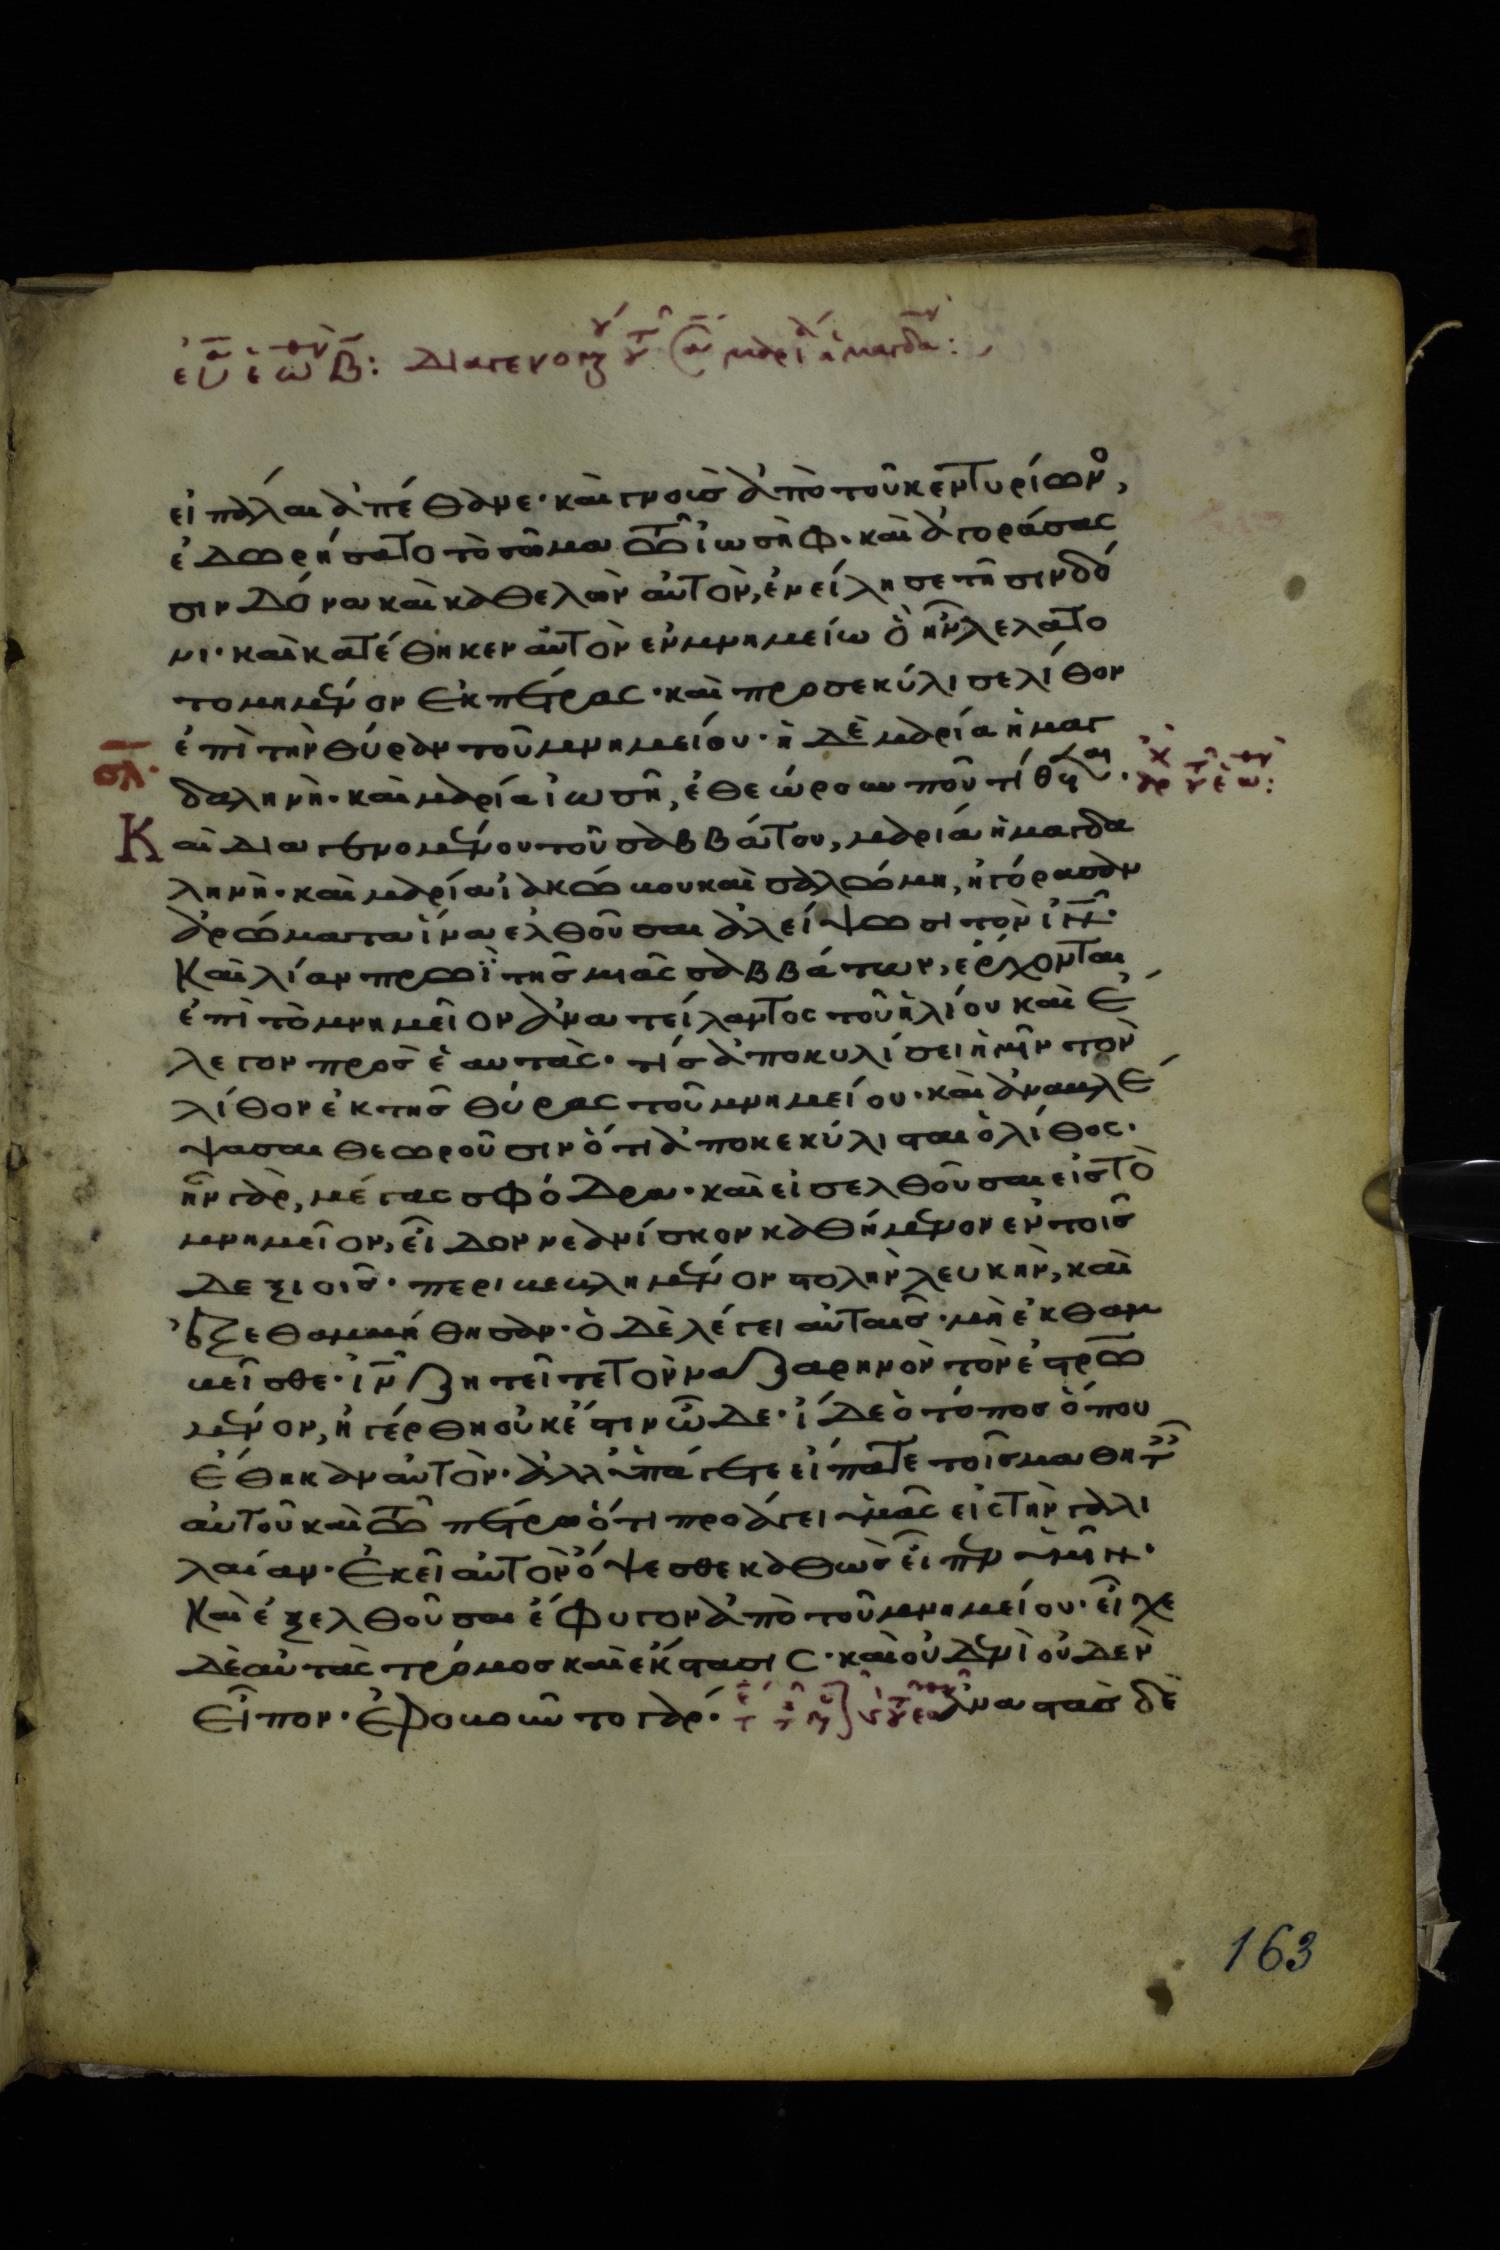 εἰ πάλαι ἀπέθανε· καὶ γνοὺς ἀπὸ τοῦ κεντυρίωνο,
ἐδωρήσατο τὸ σῶμα τῶ ἰωσὴφ· καὶ ἀγοράσας
σινδόνα καὶ καθελὼν αὐτὸν, ἐνείλησε τῆ σινδό
νι· καὶ κατέθηκεν αὐτὸν ἐν μνημείω ὃ ἦν λελατο
τομημένον ἐκ πέτρας· καὶ προσεκύλισε λίθον
ἐπὶ τὴν θύραν τοῦ μνημείου· ἡ δὲ μαρία ἡ μαγ
δαληνὴ· καὶ μαρία ἰωσῆ, ἐθεώρουν ποῦ τίθεται·
σλ
Καὶ διαγενομένου τοῦ σαββάτου, μαρία ἡ μαγδα
ληνὴ· καὶ μαρία ἰακώβου καὶ σαλώμη, ἠγόρασαν
ἀρώματα ἵνα ἐλθοῦσαι ἀλείψωσι τὸν ιν·
Καὶ λίαν πρωῒ τῆς μιᾶς σαββάτων, ἔρχονται
ἐπὶ τὸ μνημεῖον ἀνατείλαντος τοῦ ἡλίου καὶ ἔ
λεγον πρὸς ἑαυτάς· τίς ἀποκυλίσει ἡμῖν τὸν
λίθον ἐκ τῆς θύρας τοῦ μνημείου· καὶ ἀναβλέ
ψασαι θεωροῦσιν ὅτι ἀποκεκύλισται ὁ λίθος·
ἦν γὰρ, μέγας σφόδρα· καὶ εἰσελθοῦσαι εἰς τὸ
μνημεῖον, εἶδον νεανίσκον καθήμενον ἐν τοῖς
δεξιοῖς· περιβεβλημένον στολὴν λευκὴν, καὶ
ἐξεθαμβήθησαν· ὁ δὲ λέγει αὐταῖς· μὴ ἐκθαμ
βεῖσθε· ιν ζητεῖτε τὸν ναζαρηνὸν τὸν ἐστρω
μένον, ἠγέρθη οὐκ ἔστιν ὧδε· ἴδε ὁ τόπος ὅπου
ἔθηκαν αὐτὸν· ἀλλ' ὑπάγετε εἴπατε τοῖς μαθητ
αὐτοῦ καὶ τῶ πέτρω ὅτι προάγει ὑμᾶς εἰς τὴν γαλι
λαίαν· ἐκεῖ αὐτὸν ὄψεσθε καθὼς εἶπεν ὑμῖν·
Καὶ ἐξελθοῦσαι ἔφυγον ἀπὸ τοῦ μνημείου· εἶχε
δὲ αὐτὰς τρόμος καὶ ἔκστασις· καὶ οὐδενὶ οὐδὲν
εἶπον· ἐφοβοῦντο γάρ· ἀναστὰς δὲ
163